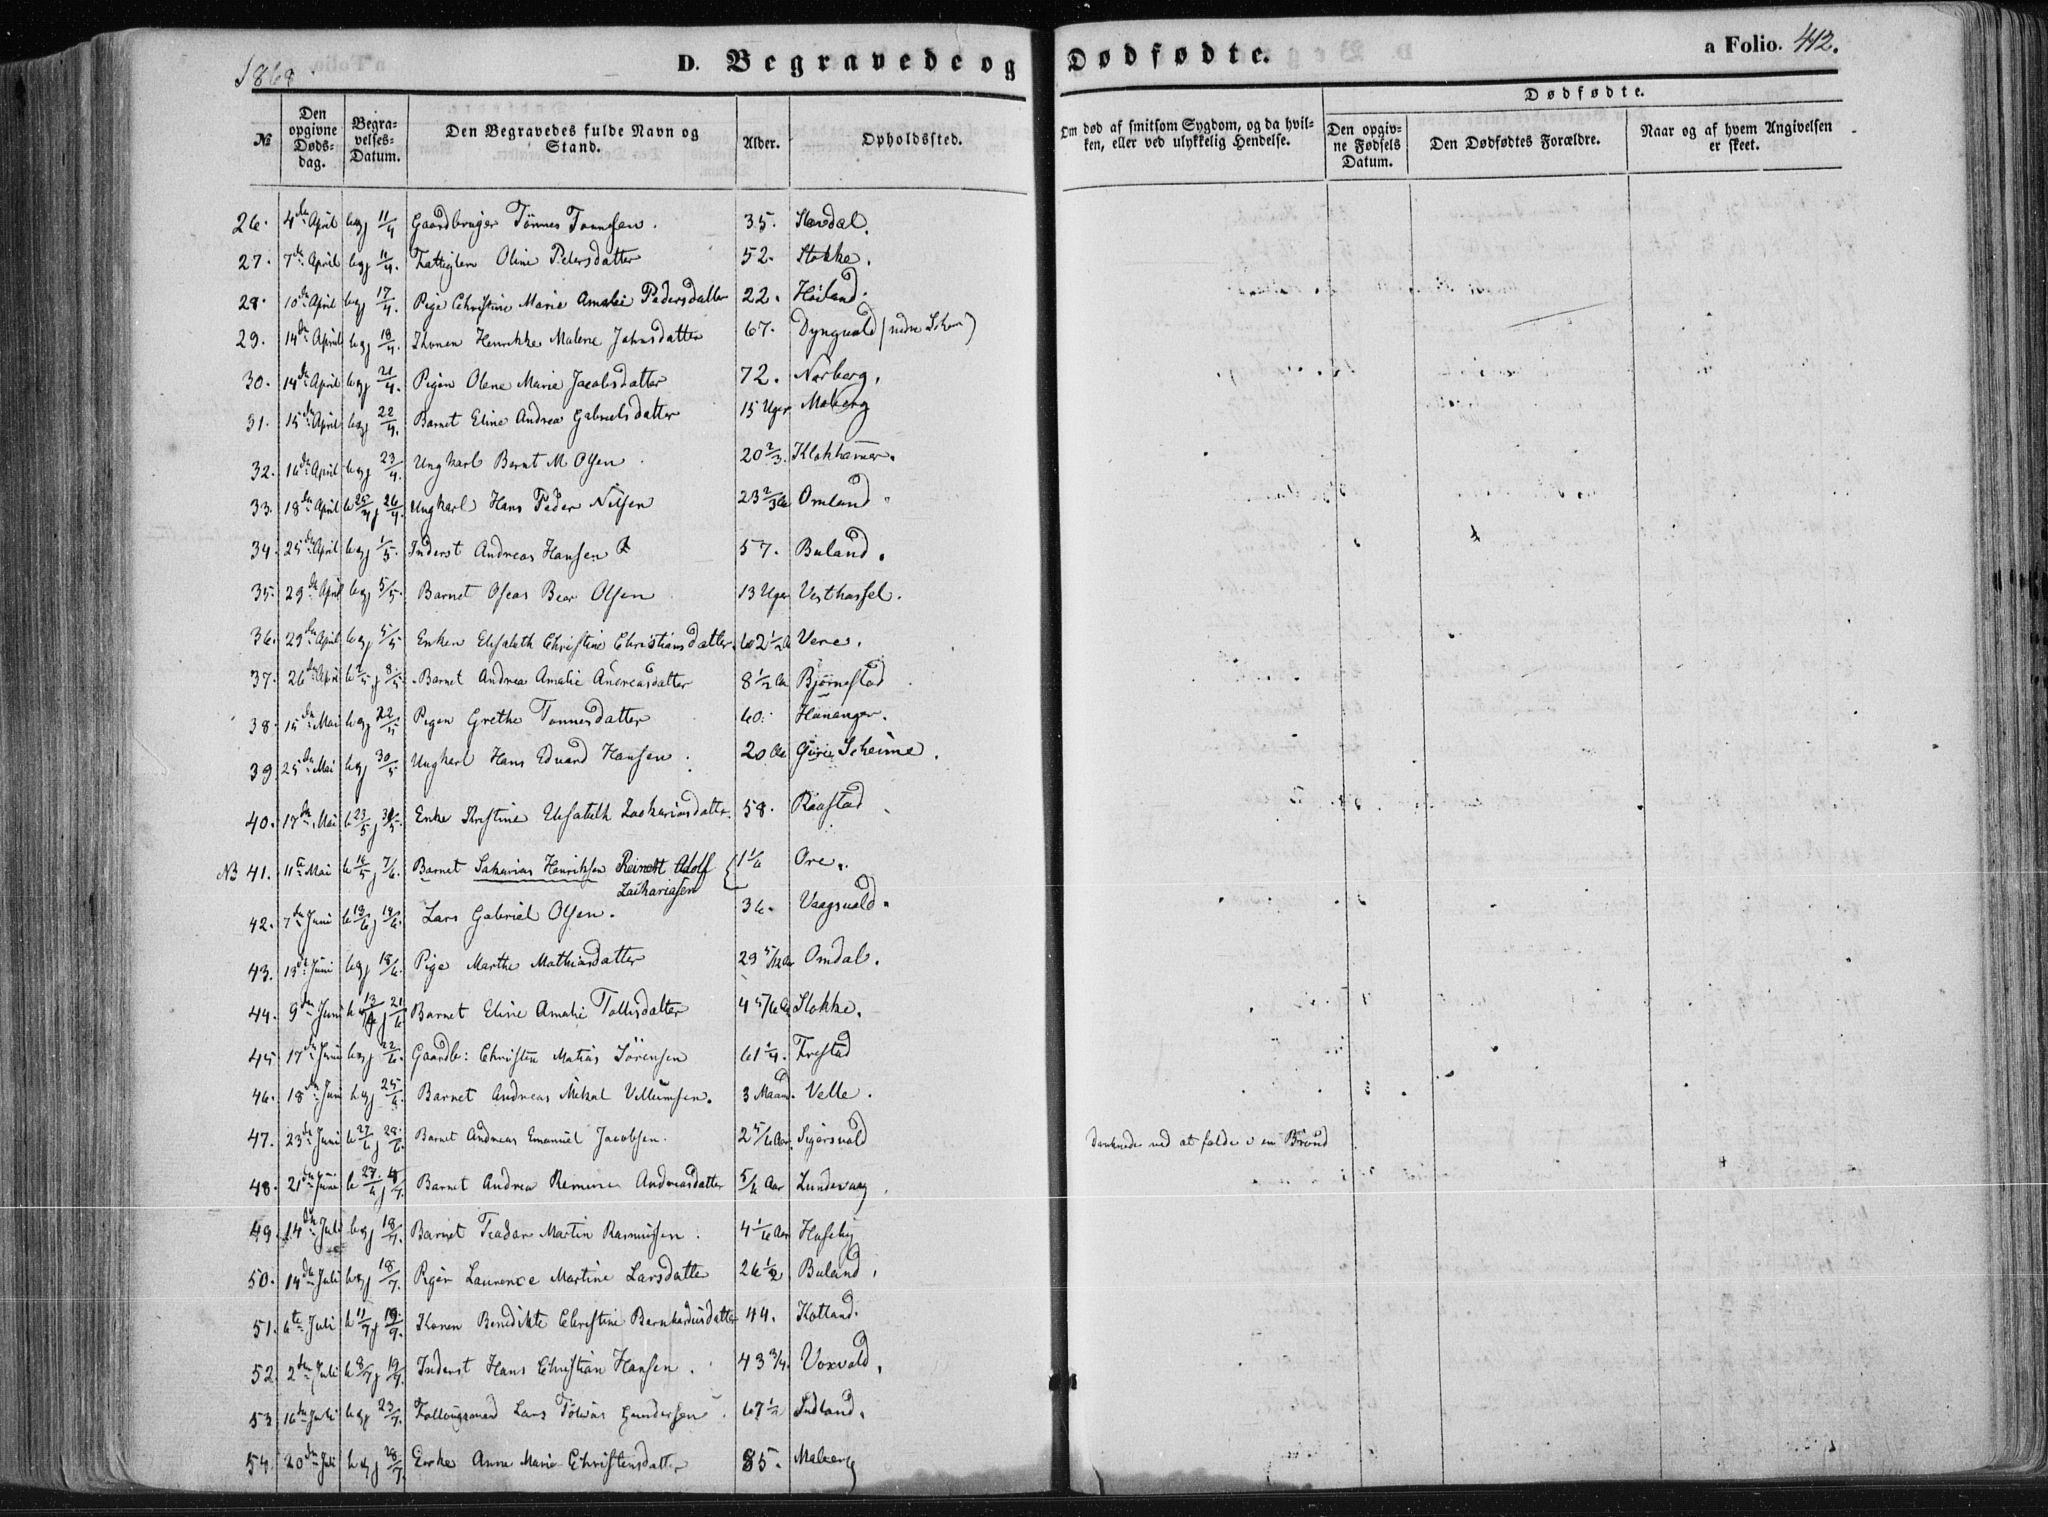 1868
D. Begravede og Dødfødte.
a Folio. 412.
№
Den opgivne Dødsdag.
Begravelses-Datum.
Den Begravedes fulde Navn og Stand.
Alder.
Opholdssted.
Om død af smitsom Sygdom, og da hvilken, eller ved ulykkelig Hendelse.
Dødfødte.
Den opgivne Fødsels Datum.
Den Dødfødtes Forældre.
Naar og af hvem Angivelsen er skeet.
26. 4de April b og j 11/4 Gaardbruger Tönnes Tönnesen. 35.
27. 7de April b og j 11/4. Oline Petersdatter 52. Stokke.
28. 10de April b og j 17/4. Pige Christine Marie Amalie Pedersdatter 22. Höiland.
29. 14de April b og j 18/4. Konen Henrikke Malene Johnsdatter 67. Dyngvold (nedre
30. 14de April b og j 21/4. Pigen Olene Marie Jacobsdatter 72. Norberg.
31. 15de April b og j 22/4. Barnet Eline Andrea Gabrielsdatter 15 Uger Maberg
32. 16de April b og j 23/4. Ungkarl Bernt M Olsen 20 2/3. Klokhammer.
33. 18de April b 25/4 j 26/4. Ungkarl Hans Peder Nilsen 23 2/3 Omland
34. 25de April b og j 1/5. Inderst Andreas Hansen 57. Buland.
35. 29de April b og j 5/5. Barnet Oseas Olsen 13 Uger Vesthassel.
36. 29de April b og j 5/5 Enken Elisabeth Christine Christiansdatter. 62 1/2 Vere.
37. 26de April b 2/5 j 8/5. Barnet Andrea Amalie Andreasdatter 8 1/2 Bjørnestad
38. 15de Mai b og j 22/5 Pigen Grethe Tonnesdatter 60. Hananger.
39. 25de Mai b og j 30/5 Ungkarl Hans Edvard Hansen. 20 Scheime.
40. 17de Mai b 23/5 j 31/5. Enke Kristine Elisabeth Zachariasdatter. 58. Raastad
NB 41. 11te Mai b 16/5 j 7/6. Barnet Sakarias Henriksen Reinert Adolf Zachariasen 1 1/6 Ore.
42. 7de Juni b 13/6 j 14/6. Lars Gabriel Olsen. 36. Vaagsvold.
43. 13de Juni b og j 18/6. Pige Marthe Mathiasdatter 29 5/12 Omdal.
44. 9de Juni b 13/6 j 21/6 Barnet Eline Amalie Tollisdatter 4 5/6 Stokke.
45. 17de Juni b og j 22/6. Gaardb: Christen Matias Sörensen 61 1/4. Frestad
46. 18de Juni b og j 25/6. Barnet Andreas Mikal Vellumsen. 3 Maand. Velle.
47. 23de Juni b 27/6 j 28/6. Barnet Andreas Emanuel Jacobsen. 2 5/6 Aar. Sigersvold Druknede ved at falde i en Brönd
48. 21de Juni b 27/6 j Barnet Andrea Andreasdatter 5/6 Aar Lundevaag
49. 14de Juli b og j 18/7. Barnet Teodor Martin Rasmussen. 4 1/6 Aar Huseby
50. 14de Juli b og j 18/7. Pigen Laurence Martine Larsdatter 26 1/2. Buland.
51. 6te Juli b 11/7 j 19/7. Konen Benedikte Christine Bernhardusdatter 44. Kolland.
52. 2den Juli b 8/7 j 19/7 Inderst Hans Christian Hansen. 43 3/4. Voxvold.
53. 16de Juli b og j 23/7. Lars Tobias Gundersen. 67 1/2
54. 20de Juli b og j 28/7. Enke Anne Marie Christensdatter 85. Maberg